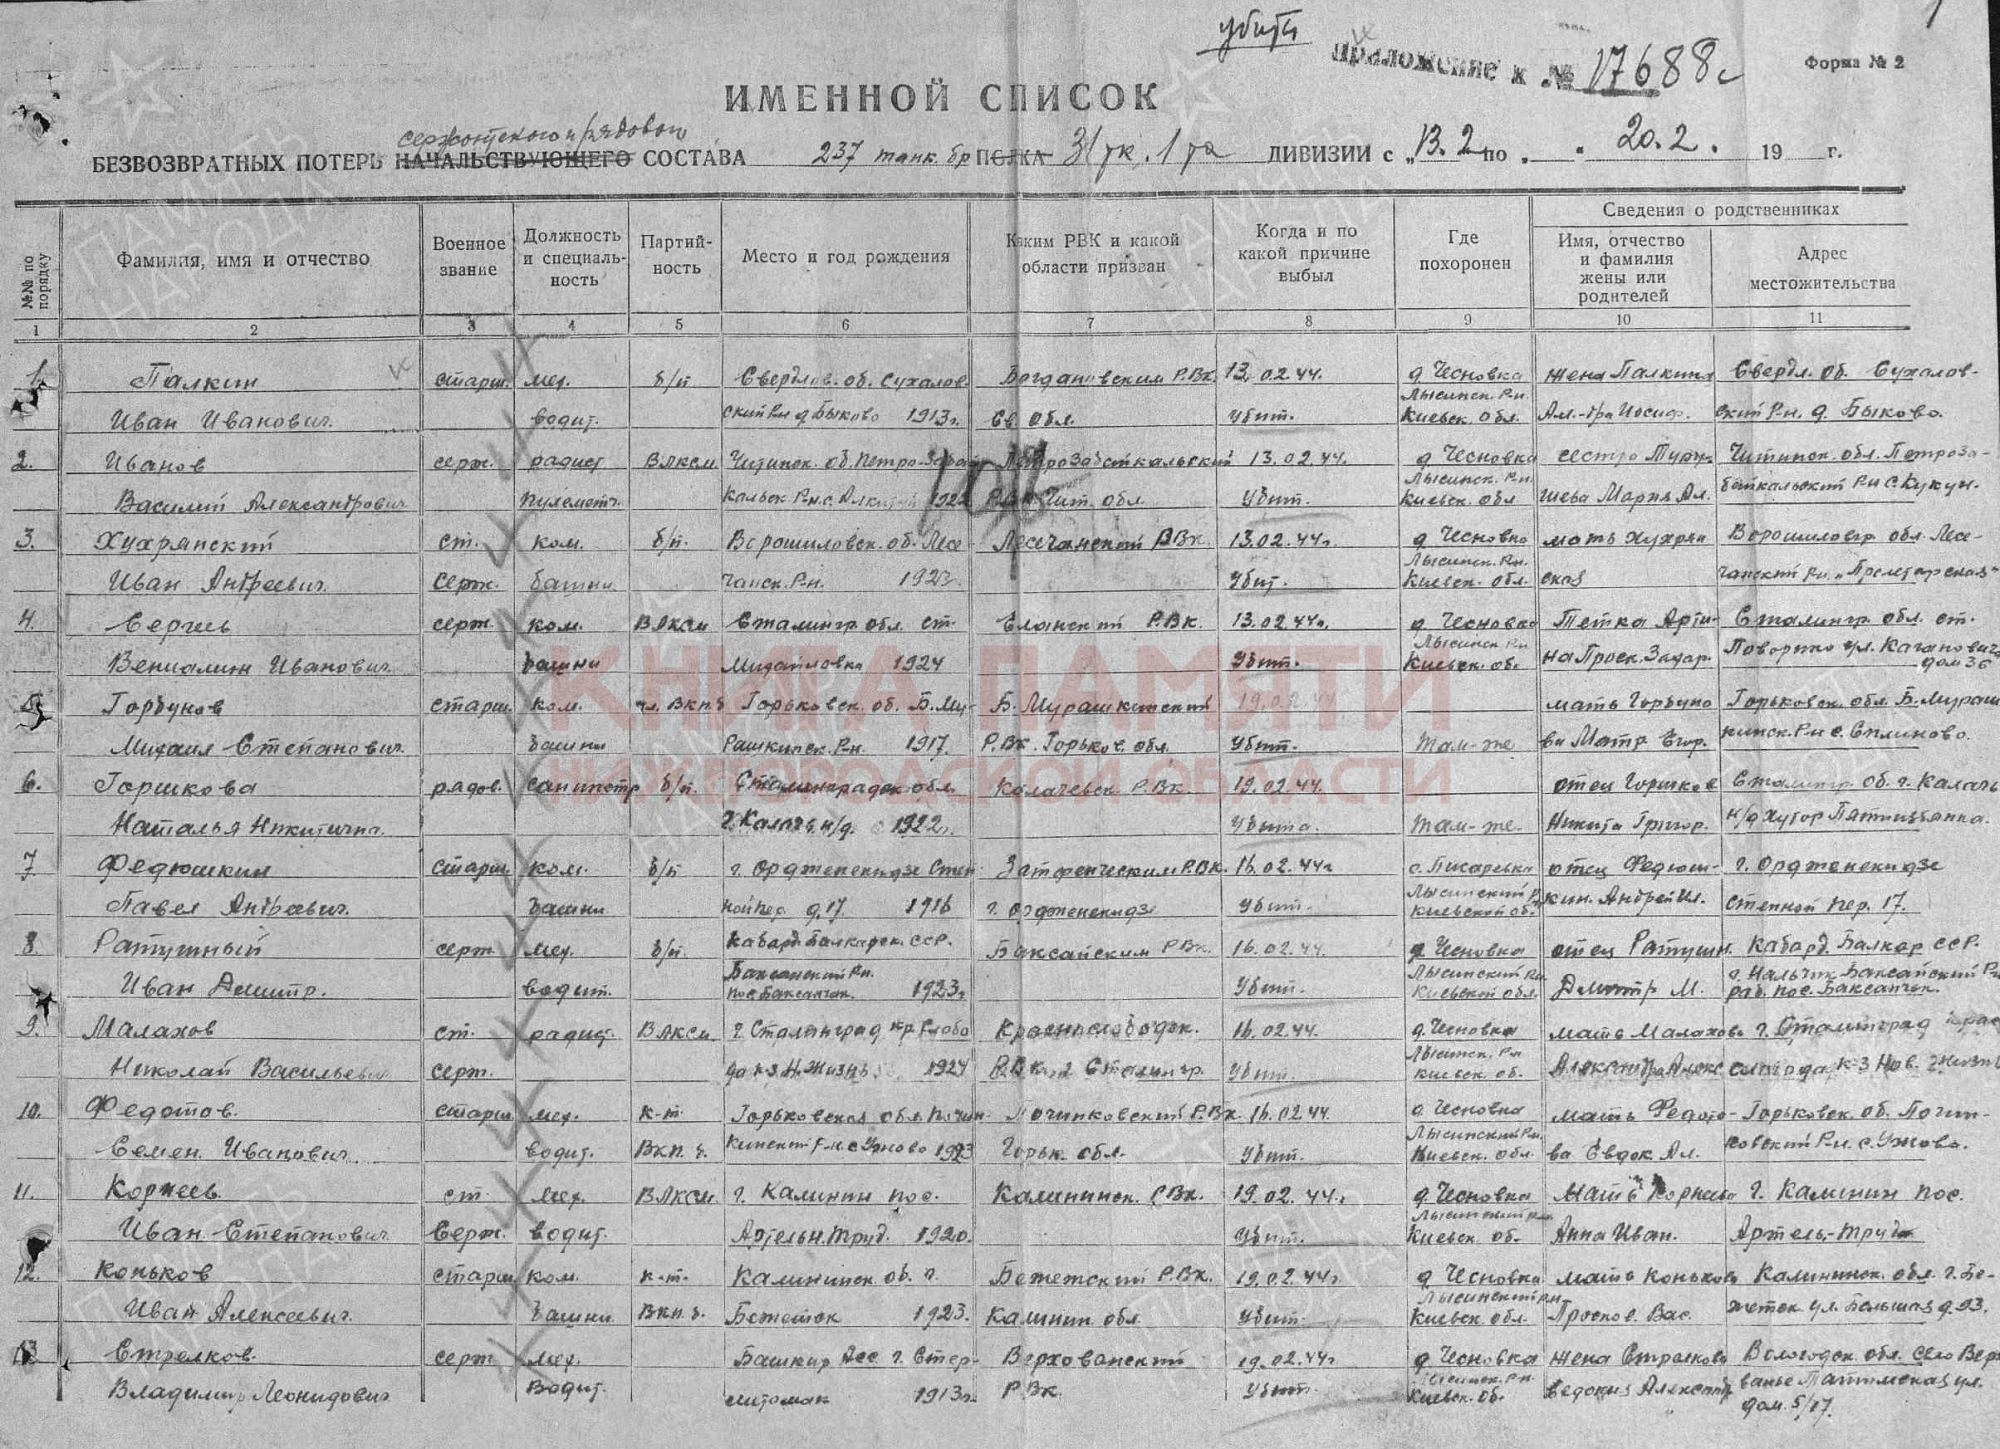 убиты
приложение к № 17688с
Форма № 2
ИМЕННОЙ СПИСОК
сержантского и рядового
БЕЗВОЗВРАТНЫХ ПОТЕРЬ НАЧАЛЬСТВУЮЩЕГО СОСТАВА 237 танк. бр ПОЛКА 31 тк. 1 та ДИВИЗИИ с „13.2 по „ “ 20.2. 19 г.
№№ по порядку Фамилия, имя и отчество Военное звание Должность и специальность Партийность Место и год рождения Каким РВК и какой области призван Когда и по какой причине выбыл Где похоронен Сведения о родственниках
Имя, отчество и фамилия жены или родителей Адрес местожительства
1 2 3 4 5 6 7 8 9 10 11
1. Палкин старш. мех. б/п Свердлов. об. Сухалов- Богдановским Р.Вк. 13.02.44. д Чесновка жена Палкина Свердл. об. Сухалов-
Иван Иванович. водит. ский Р-н д Быково 1913г. Св. Обл. Убит. Лысинск. Р-н. Киевск. Обл. Ал-тра Иосиф. ский Р-н. д. Быково.
2. Иванов серж. радист ВЛксм Читинск. об. Петро-Забай 13.02.44. д Чесновка сестра Читинск. обл. Петроза-
Василий Александрович пулеметч. 1922 Р.Вк Чит. обл. Убит. Лысинск. Р-н. Киевск. обл Мария Ал. байкальский Р-н с. Кукун.
3. Хухрянский ст. ком. б/п. Ворошиловск. об. Лесе- Лесечанский РВк 13.02.44г. д Чесновка мать Хухрян Ворошиловгр обл. Лесе-
Иван Андреевич. серж. башни чанск. Р-н. 1923. Убит. Лысинск. Р-н. Киевск. обл. ская чанский Р-н. „Пролетарская“
4. Сергись серж. ком. ВЛксм Сталингр. обл. ст. Еланский Р.Вк. 13.02.44г. д Чесновка Тетка Арти- Сталингр. обл. ст.
Вениамин Иванович. башни Михайловка 1924 Убит. Лысинск Р-н Киевск. об. на Проск. Захар. Поворино ул. Кагановича дом 36
5. Горбунов старш. ком. чл. Вкп.б Горьковск. об. Б. Му- Б. Мурашкинский 19.02.44 мать Горбуно Горьковск. обл. Б. Мураш
Михаил Степанович. башни рашкинск. Р-н. 1917. Р.Вк. Горьков. обл. Убит. Там-же ва Матр. Егор. кинск. Р-н с.
6. Горшкова рядов. санинстр б/п. Сталинградск обл. Калачевск. Р.Вк. 19.02.44. отец Горшков Сталингр. об. г. Калачь
Наталья Никитична. г. Калачь н/д. 1922г. Убита. Там-же. Никита Григор. н/д хутор Пятиизбянка.
7 Федюшкин старш. ком. б/п г. Орджоникидзе Степ- Затереческим Р.Вк. 16.02.44г с. Писаревка отец Федюш- г. Орджоникидзе
Павел Андреевич. башни ной пер. д. 17. 1916 г. Орджоникидзе Убит. Лысинский Р. Киевской об. кин. Андрей Ил. Степной пер. 17.
8. Ратушный серж. мех. б/п. Кабард. Балкарск. ССР. Баксанским РВк. 16.02.44. д Чесновка отец Ратушн. Кабард. Балкар. ССР.
Иван Дмитр. водит. Баксанский Р-н. пос. Баксанчик. 1923г Убит. Лысинский Р-н. Киевской обл. Дмитр М. г. Нальчик Баксанский Р-н раб. пос. Баксанчик.
9. Малахов ст. радист. ВЛксм г. Сталинград кр. Слобо Краснослободск. 16.02.44. д. Чесновка мать Малахова г. Сталинград Крас
Николай Васильевич серж. да к-з Н. Жизнь 1924 Р.Вк. г Сталингр. Убит. Лысинск. Р-н Киевск. об. Александра Алекс слобода к-з Нов. Жизнь
10. Федотов. старш мех. к-т. Горьковская обл. Почин- Починковский Р.Вк. 16.02.44. с Чесновка мать Федото- Горьковск. об. Почин-
Семен Иванович. водит. Вкп. б. кинский Р-н с Ужово 1923 Горьк. обл. Убит. Лысинский Р-н. Киевск. обл. ва Евдок. Ал. ковский Р-н. с. Ужово.
11. Корнеев ст. мех. ВЛксм г. Калинин пос. Калининск. РВк. 19.02.44г. д Чесновка Мать Корнеева г. Калинин пос.
Иван Степанович. Серж. водит. Артельн. труд. 1920. Убит. Лысинский Р-н Киевск. об. Анна Иван. Артель-труда
12. Коньков старш ком. к-т. Калининск. об. г. Бежетский Р.Вк. 19.02.44г. д Чесновка мать Конькова Калининск. обл. г. Бе-
Иван Алексеевич. башни. Вкп. б. Бежетск 1923. Калинин. обл Убит. Лысинский Р-н Киевск. обл. Просков. Вас. жетск ул. Большая д. 93.
13 Стрелков. серж мех. Башкир. Асс. г. Стер- Верховажский 19.02.44г. д Чесновка жена Стрелкова Вологодск. обл. Село Верх
Владимир Леонидович водит. литамак 1913г. РВк. Убит. Лысинск. Р-н. Киевск. об. Евдокия Александ. важье ул. дом. 5/17.
КНИГА ПАМЯТИ
НИЖЕГОРОДСКОЙ ОБЛАСТИ
ПАМЯТЬ НАРОДА